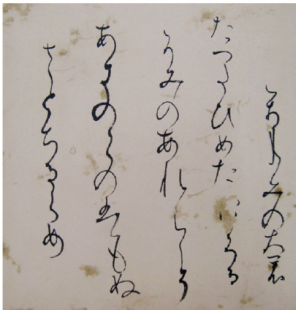 かねみの大君
たつたひめたむくる
かみのあればこそ
あきのこのはのぬ
さとちるらめ